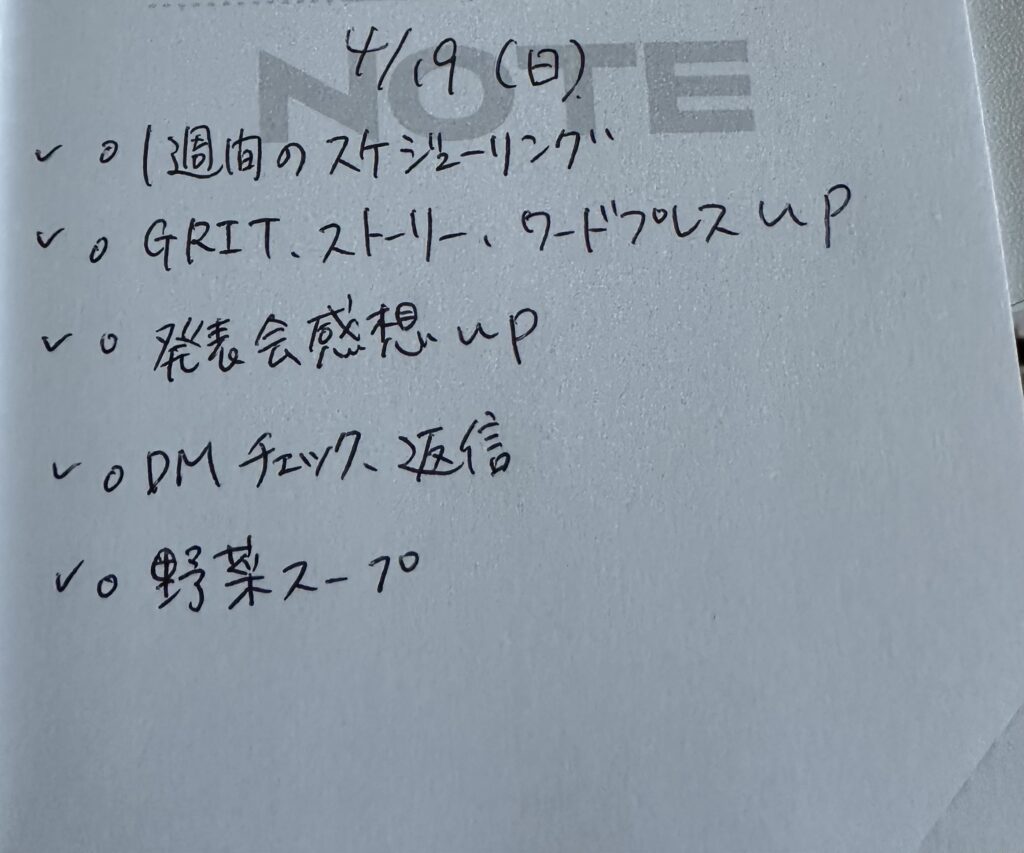 NOTE
4/19（日）
✓ ○ 1週間のスケジューリング
✓ ○ GRIT、ストーリー、ワードプレスup
✓ ○ 発表会感想up
✓ ○ DMチェック、返信
✓ ○ 野菜スープ